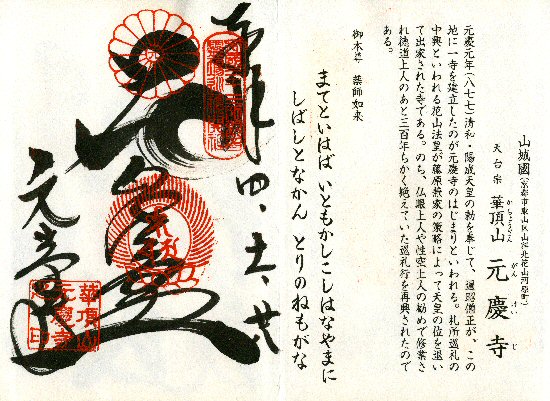 山城國(京都市東山区山科北花山河原町)
天台宗 華頂山 元慶寺
かちょうざん がんけいじ
元慶元年(八七七)清和・陽成天皇の勅を奉じて、遍照僧正が、この
地に一寺を建立したのが元慶寺のはじまりといわれる。札所巡礼の
中興といわれる花山法皇が藤原兼家の策略によって天皇の位を退い
て出家された寺である。のち、仏眼上人や性空上人の勧めで修業さ
れ徳道上人のあと三百年ちかく絶えていた巡礼行を再興されたので
ある。
御本尊 薬師如来
まてといはば いともかしこしはなやまに
しばしとなかん とりのねもがな
奉拝
元慶寺
華頂山
元慶寺